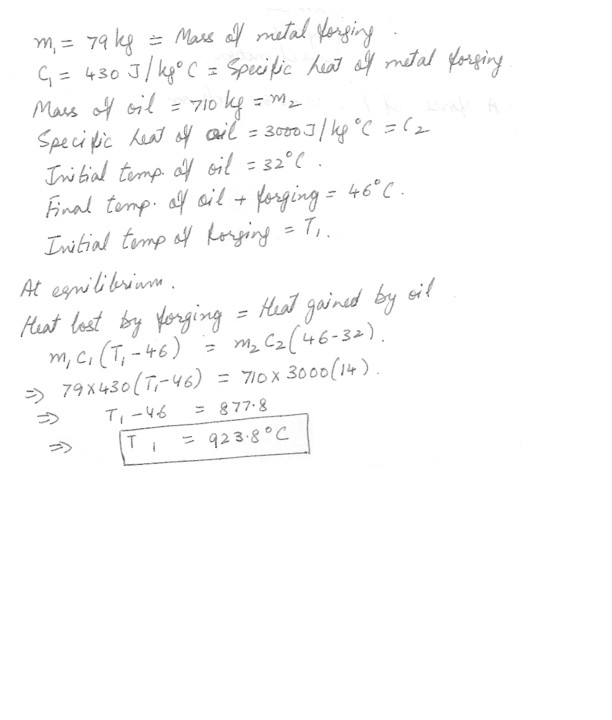 m₁ = 79 kg = Mass of metal forging.
C₁ = 430 J/kg°C = Specific heat of metal forging
Mass of oil = 710 kg = m₂
Specific heat of oil = 3000 J/kg°C = C₂
Initial temp. of oil = 32°C.
Final temp. of oil + forging = 46°C.
Initial temp of forging = T₁.
At equilibrium.
Heat lost by forging = Heat gained by oil
m₁C₁(T₁-46) = m₂C₂(46-32).
⇒ 79×430(T₁-46) = 710×3000(14).
⇒ T₁-46 = 877.8
⇒ T₁ = 923.8°C